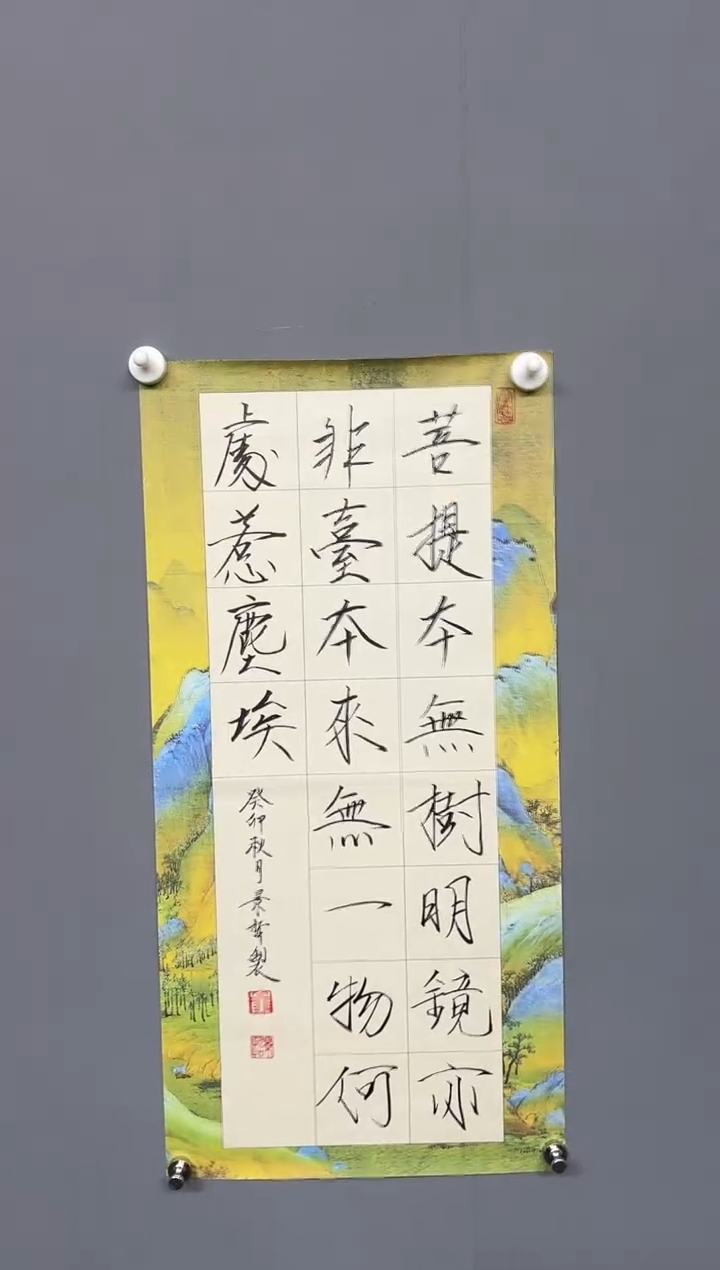 菩提本無樹明鏡亦
非臺本來無一物何
處惹塵埃
癸卯秋月景製